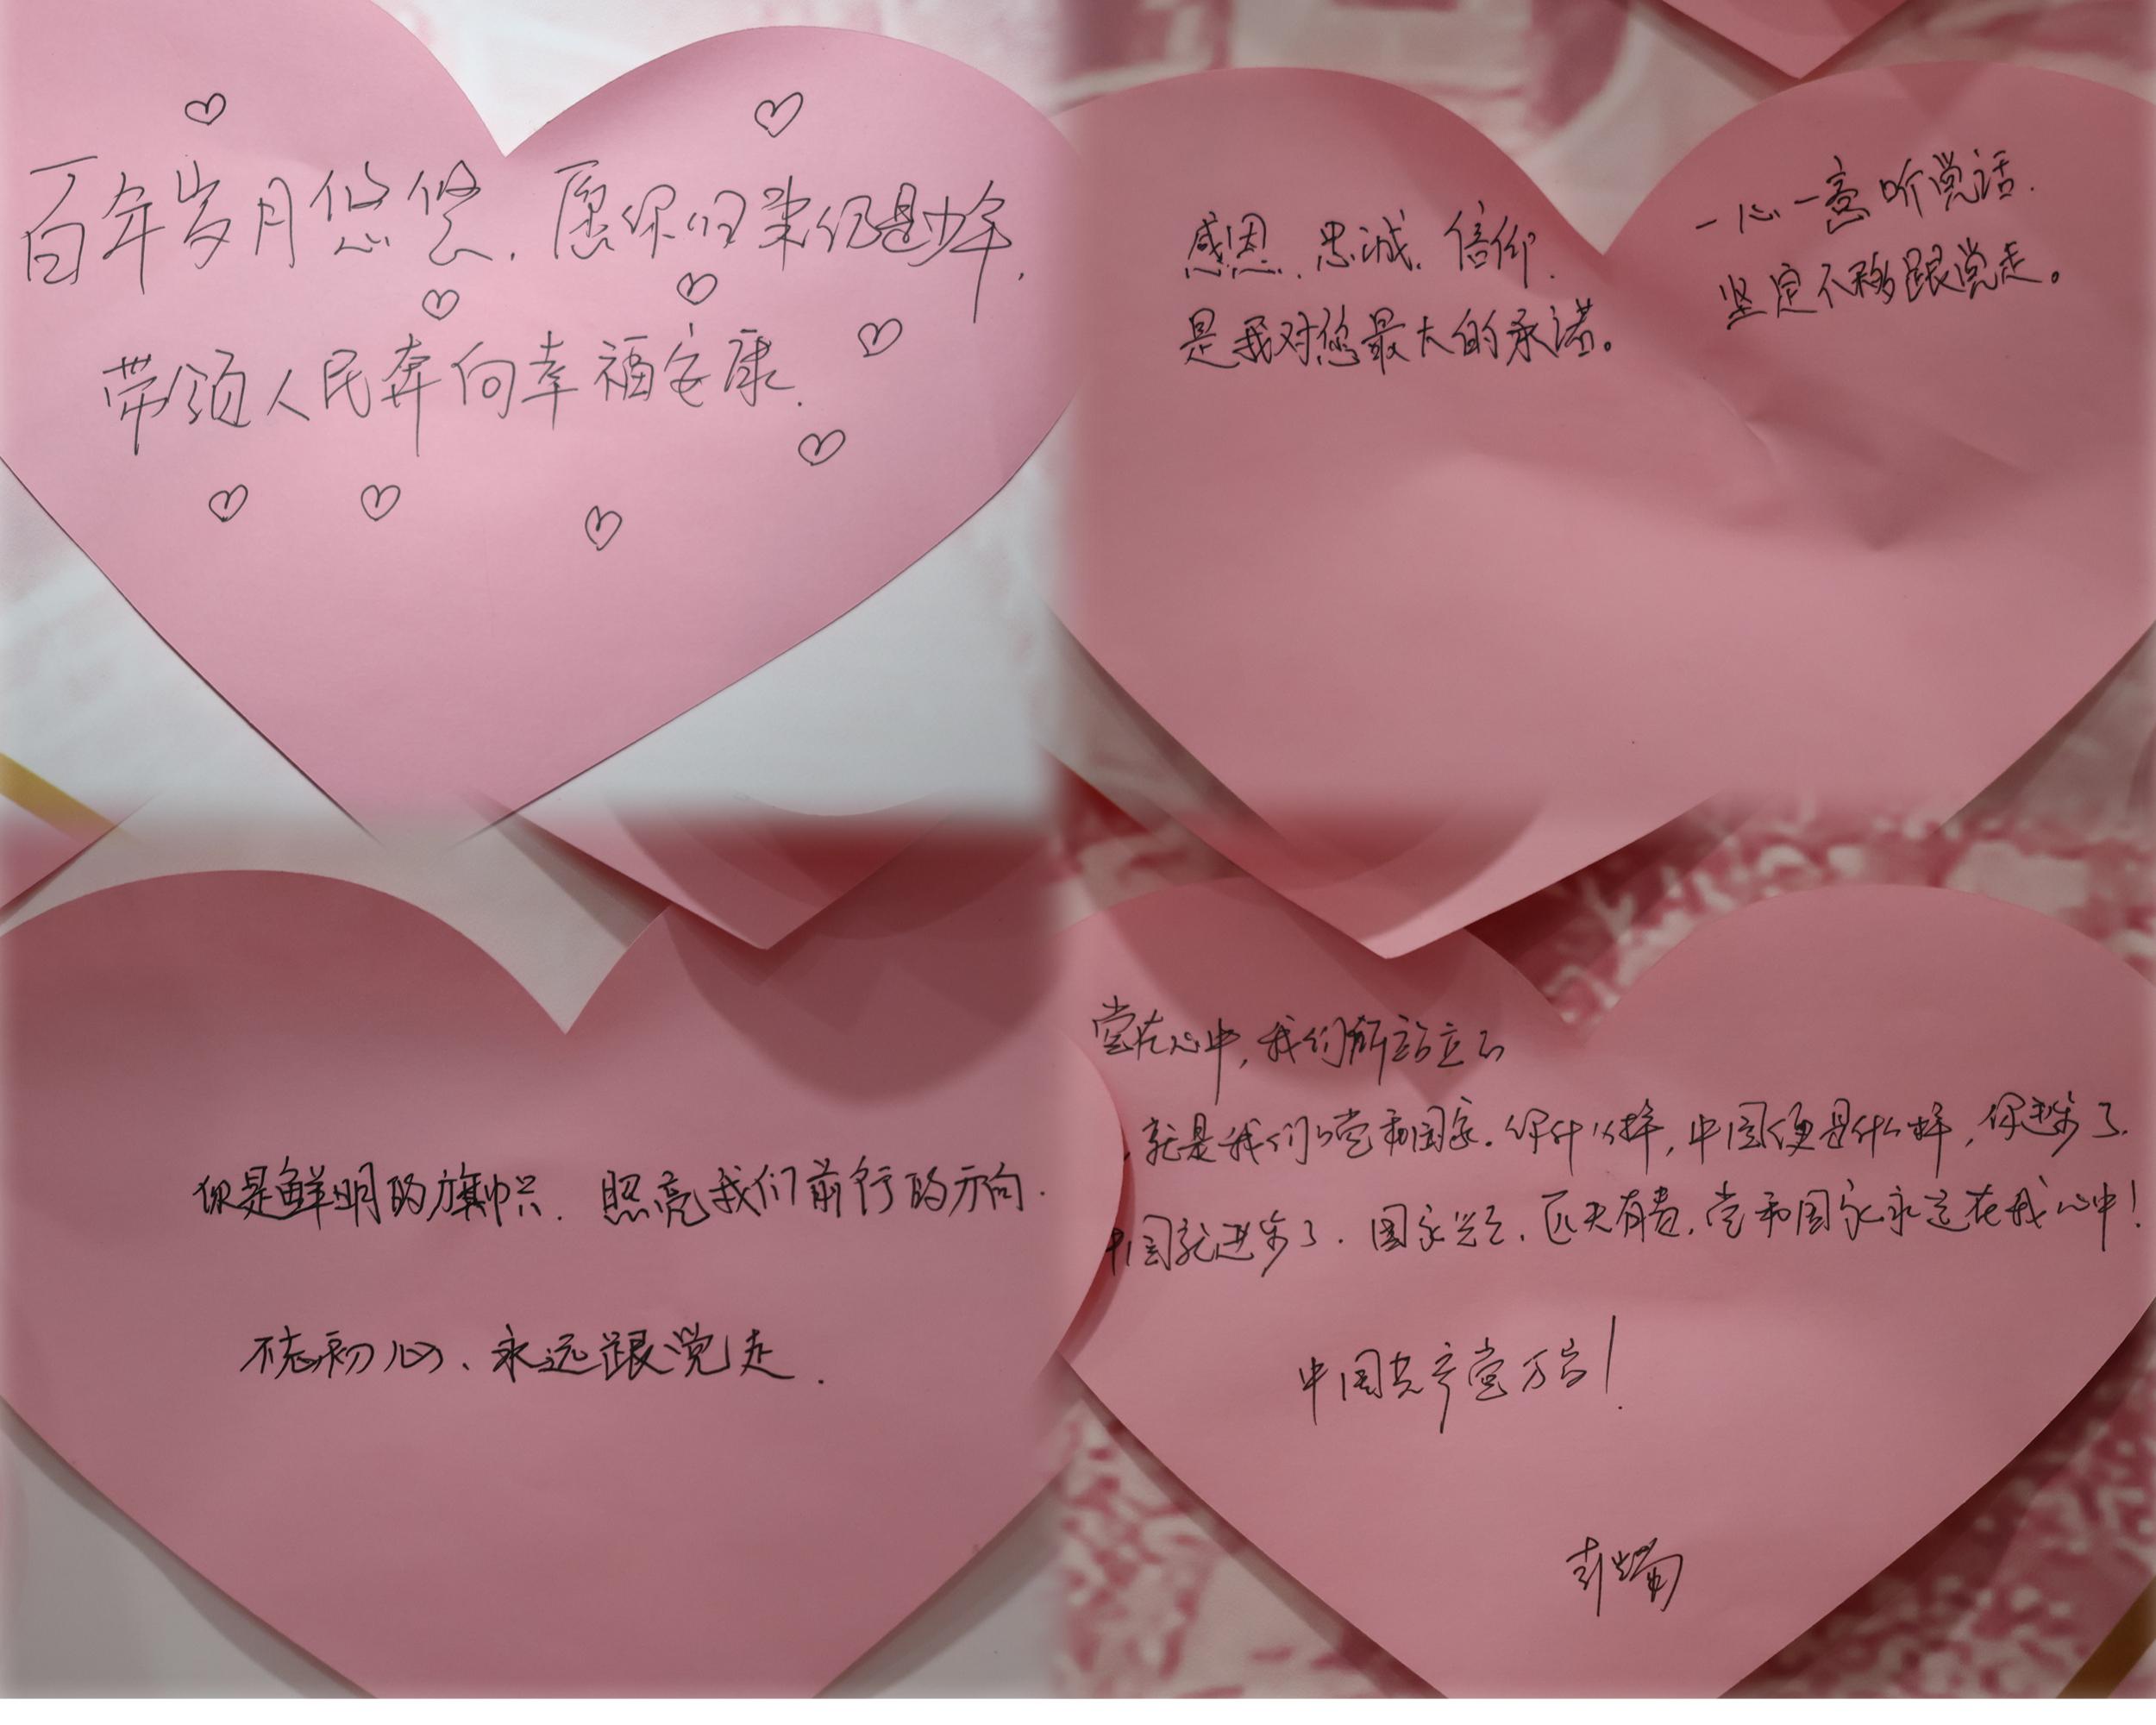 百年岁月悠悠，愿你归来仍是少年，
带领人民奔向幸福安康．
感恩．忠诚．信仰．
是我对您最大的承诺。
一心一意听党话．
坚定不移跟党走。
你是鲜明的旗帜．照亮我们前行的方向．
不忘初心、永远跟党走．
党在心中，我们所站立的
，就是我们的党和国家．你什么样，中国便是什么样，你进步了．
中国就进步了．国家兴亡，匹夫有责，党和国家永远在我心中！
中国共产党万岁！